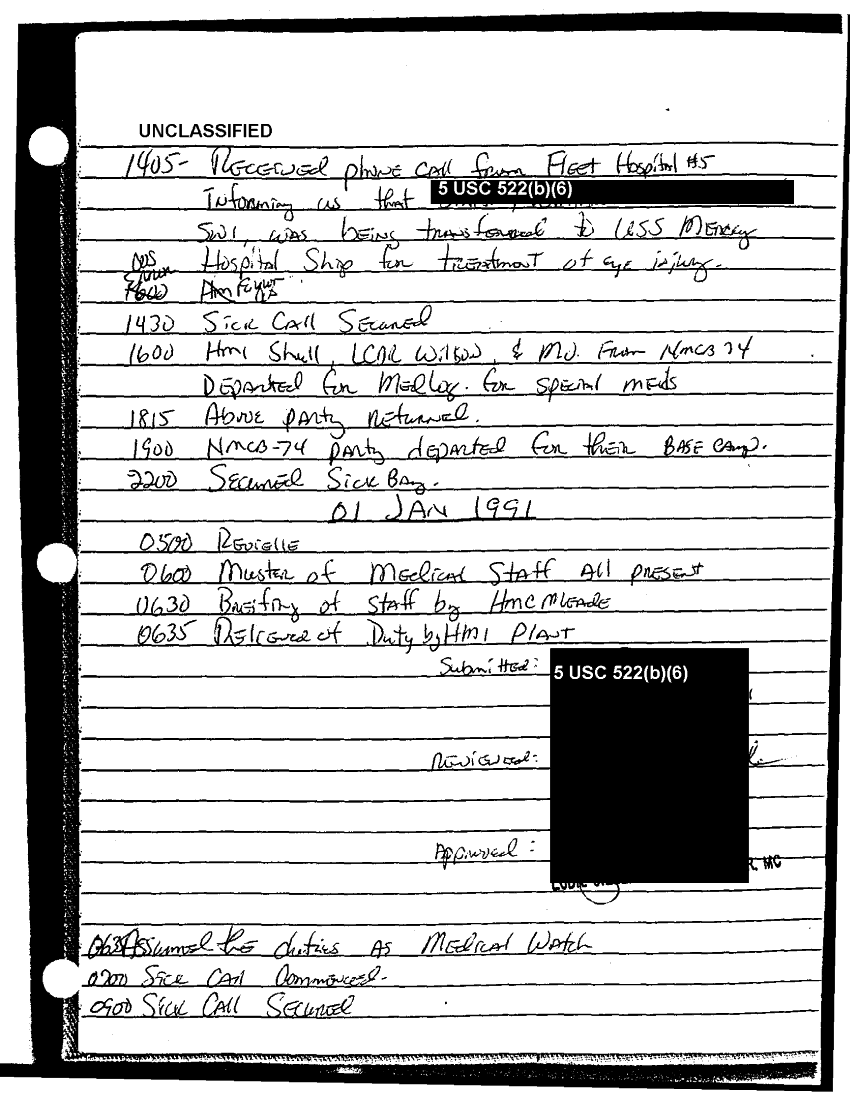 UNCLASSIFIED
1405- Received phone call from Fleet Hospital #5
5 USC 522(b)(6)
Informing us that
SW1, was being transferred to USS Mercy
Hospital Ship for treatment of eye injury.
1430 Sick Call Secured
1600 Hm1 Shull, LCDR Wilson, & MO. From NMCB 74
Departed for Medlog. for special meds
1815 Above party returned.
1900 NMCB-74 party departed for their Base camp.
2200 Secured Sick Bay.
01 JAN 1991
0500 Revielle
0600 Muster of Medical Staff All present
0630 Breifing of staff by HMC Meade
0635 Relieved of Duty by HM1 Plant
Submitted:
5 USC 522(b)(6)
Reviewed:
Approved:
R, MC
0635 Assumed the duties as Medical Watch
0700 Sick Call Commenced.
0900 Sick Call Secured